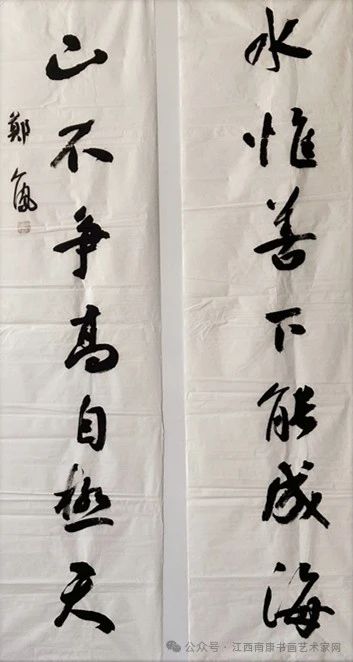 水惟善下能成海
山不争高自极天
鄭
公众号 · 江西南康书画艺术家网